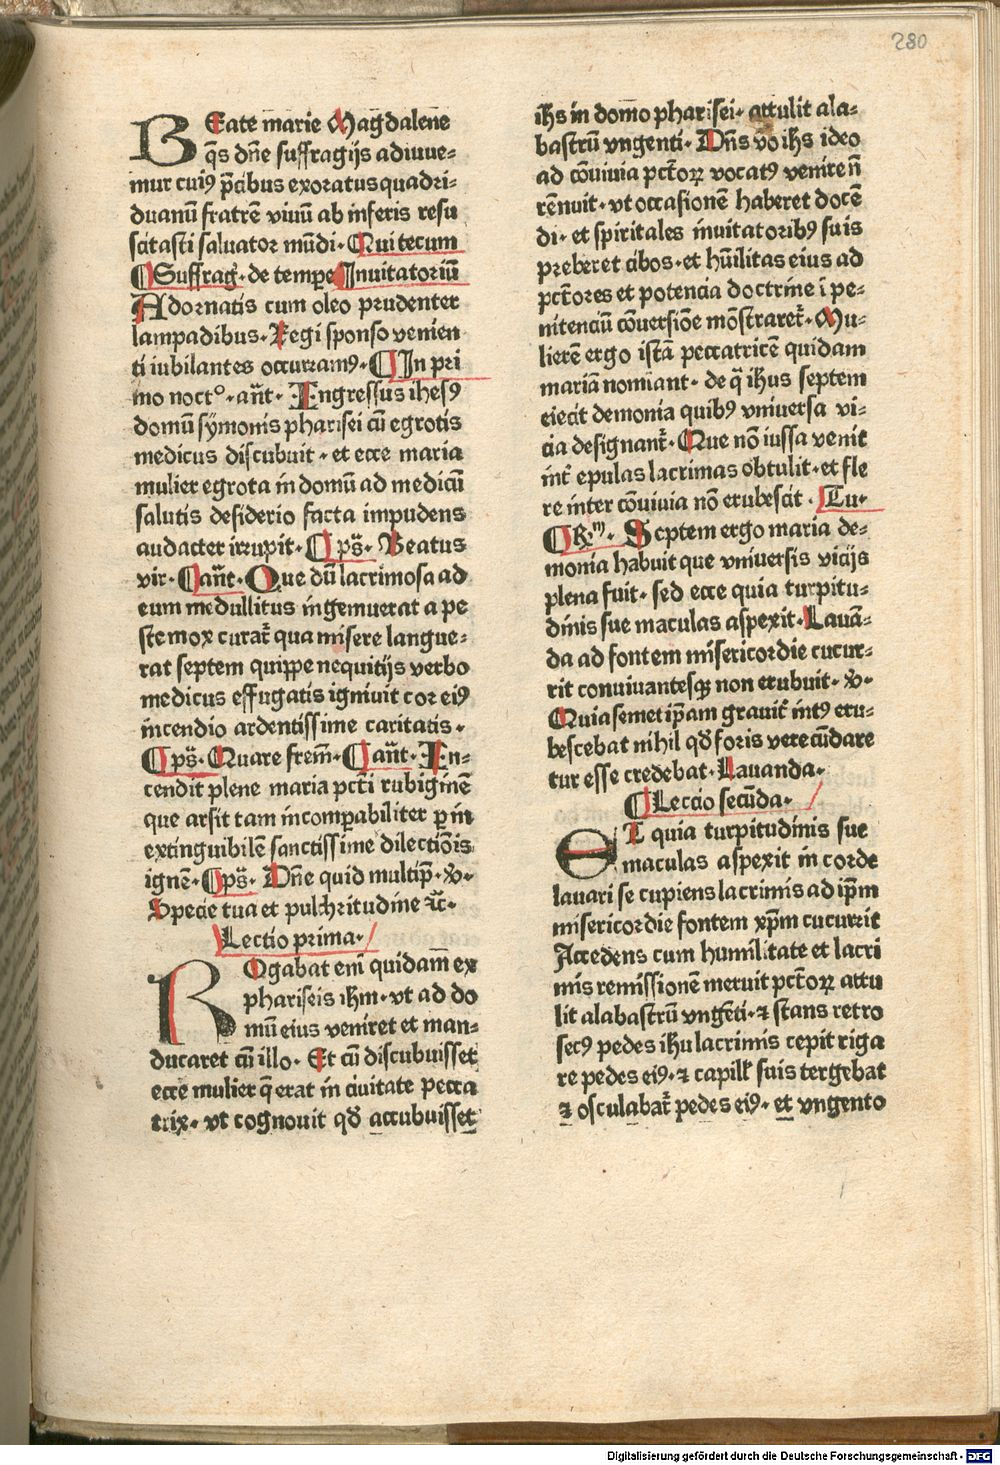 280
BEate marie Magdalene
q̄s dn̄e suffragijs adiuue⸗
mur cuiꝰ p̄cibus exoratus quadri⸗
duanū fratrē viuū ab inferis resu
scitasti saluator mūdi· Qui tecum
¶ Suffraḡ· de tempe Inuitatoriū
Adornatis cum oleo prudenter
lampadibus· Regi sponso venien
ti iubilantes occurramꝰ· ¶ In pri
mo noct°· an̄t· Ingressus ihesꝰ
domū symonis pharisei cū egrotis
medicus discubuit· et ecce maria
mulier egrota in domū ad medicū
salutis desiderio facta impudens
audacter irrupit· ¶ ps̄· Beatus
vir· ¶ an̄t· Que dū lacrimosa ad
eum medullitus ingemuerat a pe
ste mox curat̄ qua misere langue⸗
rat septem quippe nequitijs verbo
medicus effugatis igniuit cor eiꝰ
incendio ardentissime caritatis·
¶ ps̄· Quare frem̄· ¶ an̄t· In⸗
cendit plene maria pct̄i rubiginē
que arsit tam incomꝑabiliter ꝑ in
extinguibilē sanctissime dilectiōis
ignē· ¶ ps̄· Dn̄e quid multip̄· ℣·
Specie tua et pulchritudine ⁊c̄·
Lectio prima·
ROgabat em̄ quidam̄ ex
phariseis ihm̄· vt ad do
mū eius veniret et man⸗
ducaret cū illo· Et cū discubuisset
ecce mulier q̄ erat in ciuitate pecca
trix· vt cognouit qd̄ accubuisset
ihs in dom̄o pharisei· attulit ala⸗
bastrū vngenti· Dn̄s vo ihs ideo
ad cōuiuia pct̄oꝝ vocatꝰ venire n̄
rēnuit· vt occasionē haberet docē
di· et spiritales inuitatoribꝰ suis
preberet cibos· et hūilitas eius ad
pct̄ores et potencia doctrine ī pe⸗
nitenciū cōuersiōe mōstraret̄· Mu⸗
lierē ergo istā peccatricē quidam
mariā nomiant· de q̄ ihus septem
eiecit demonia quibꝰ vniuersa vi⸗
cia designant̄· Que nō iussa venit
int̄ epulas lacrimas obtulit· et fle
re inter cōuiuia nō erubescit· Tu·
¶ R̄m̄· Septem ergo maria de⸗
monia habuit que vniuersis vicijs
plena fuit· sed ecce quia turpitu⸗
dinis sue maculas aspexit· Lauā⸗
da ad fontem misericordie cucur⸗
rit conuiuantesqꝫ non erubuit· ℣·
Quia semet ip̄am grauit̄ intꝰ eru⸗
bescebat nihil qd̄ foris verecūdare
tur esse credebat· Lauanda·
¶ Lectio secūda·
ET quia turpitudinis sue
maculas aspexit in corde
lauari se cupiens lacrimis ad ip̄m
misericordie fontem xp̄m cucurrit
Accedens cum humilitate et lacri
mis remissionē meruit pct̄oꝝ attu
lit alabastrū vngēti· ⁊ stans retro
secꝰ pedes ihu lacrimis cepit riga
re pedes eiꝰ· ⁊ capill̄ suis tergebat
⁊ osculabat̄ pedes eiꝰ· et vngento
Digitalisierung gefördert durch die Deutsche Forschungsgemeinschaft - DFG